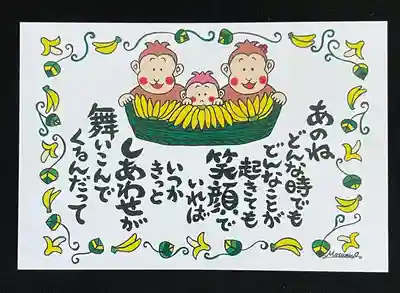 あのね
どんな時でも
どんなことが
起きても
笑顔で
いれば
いつか
きっと
しあわせが
舞いこんで
くるんだって